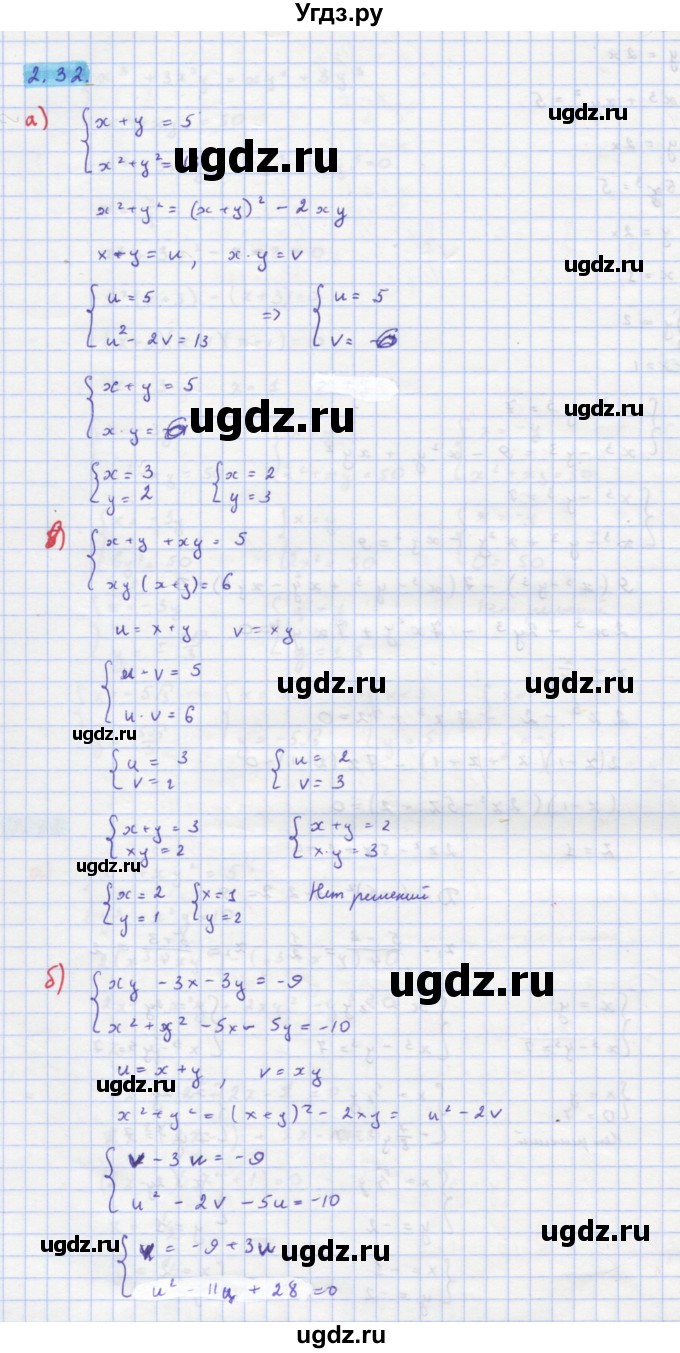 Угдз.ру
2.32.
а) { x + y = 5
x² + y² =
ugdz.ru
ugdz.ru
x² + y² = (x + y)² - 2xy
x + y = u, x · y = v
ugdz.ru
{ u = 5 => { u = 5
u² - 2v = 13 v = 6
{ x + y = 5
x · y = 6
ugdz.ru
ugdz.ru
{ x = 3 { x = 2
y = 2 y = 3
в) { x + y + xy = 5
xy (x + y) = 6
u = x + y v = xy
{ u - v = 5
u · v = 6
ugdz.ru
ugdz.ru
ugdz.ru
{ u = 3 { u = 2
v = 2 v = 3
{ x + y = 3 { x + y = 2
xy = 2 x · y = 3
ugdz.ru
{ x = 2 { x = 1 Нет решений
y = 1 y = 2
б) { xy - 3x - 3y = -9
x² + y² - 5x - 5y = -10
ugdz.ru
u = x + y, v = xy
ugdz.ru
x² + y² = (x + y)² - 2xy = u² - 2v
{ v - 3u = -9
u² - 2v - 5u = -10
ugdz.ru
{ v = -9 + 3u
u² - 11u + 28 = 0
ugdz.ru
ugdz.ru
ugdz.ru